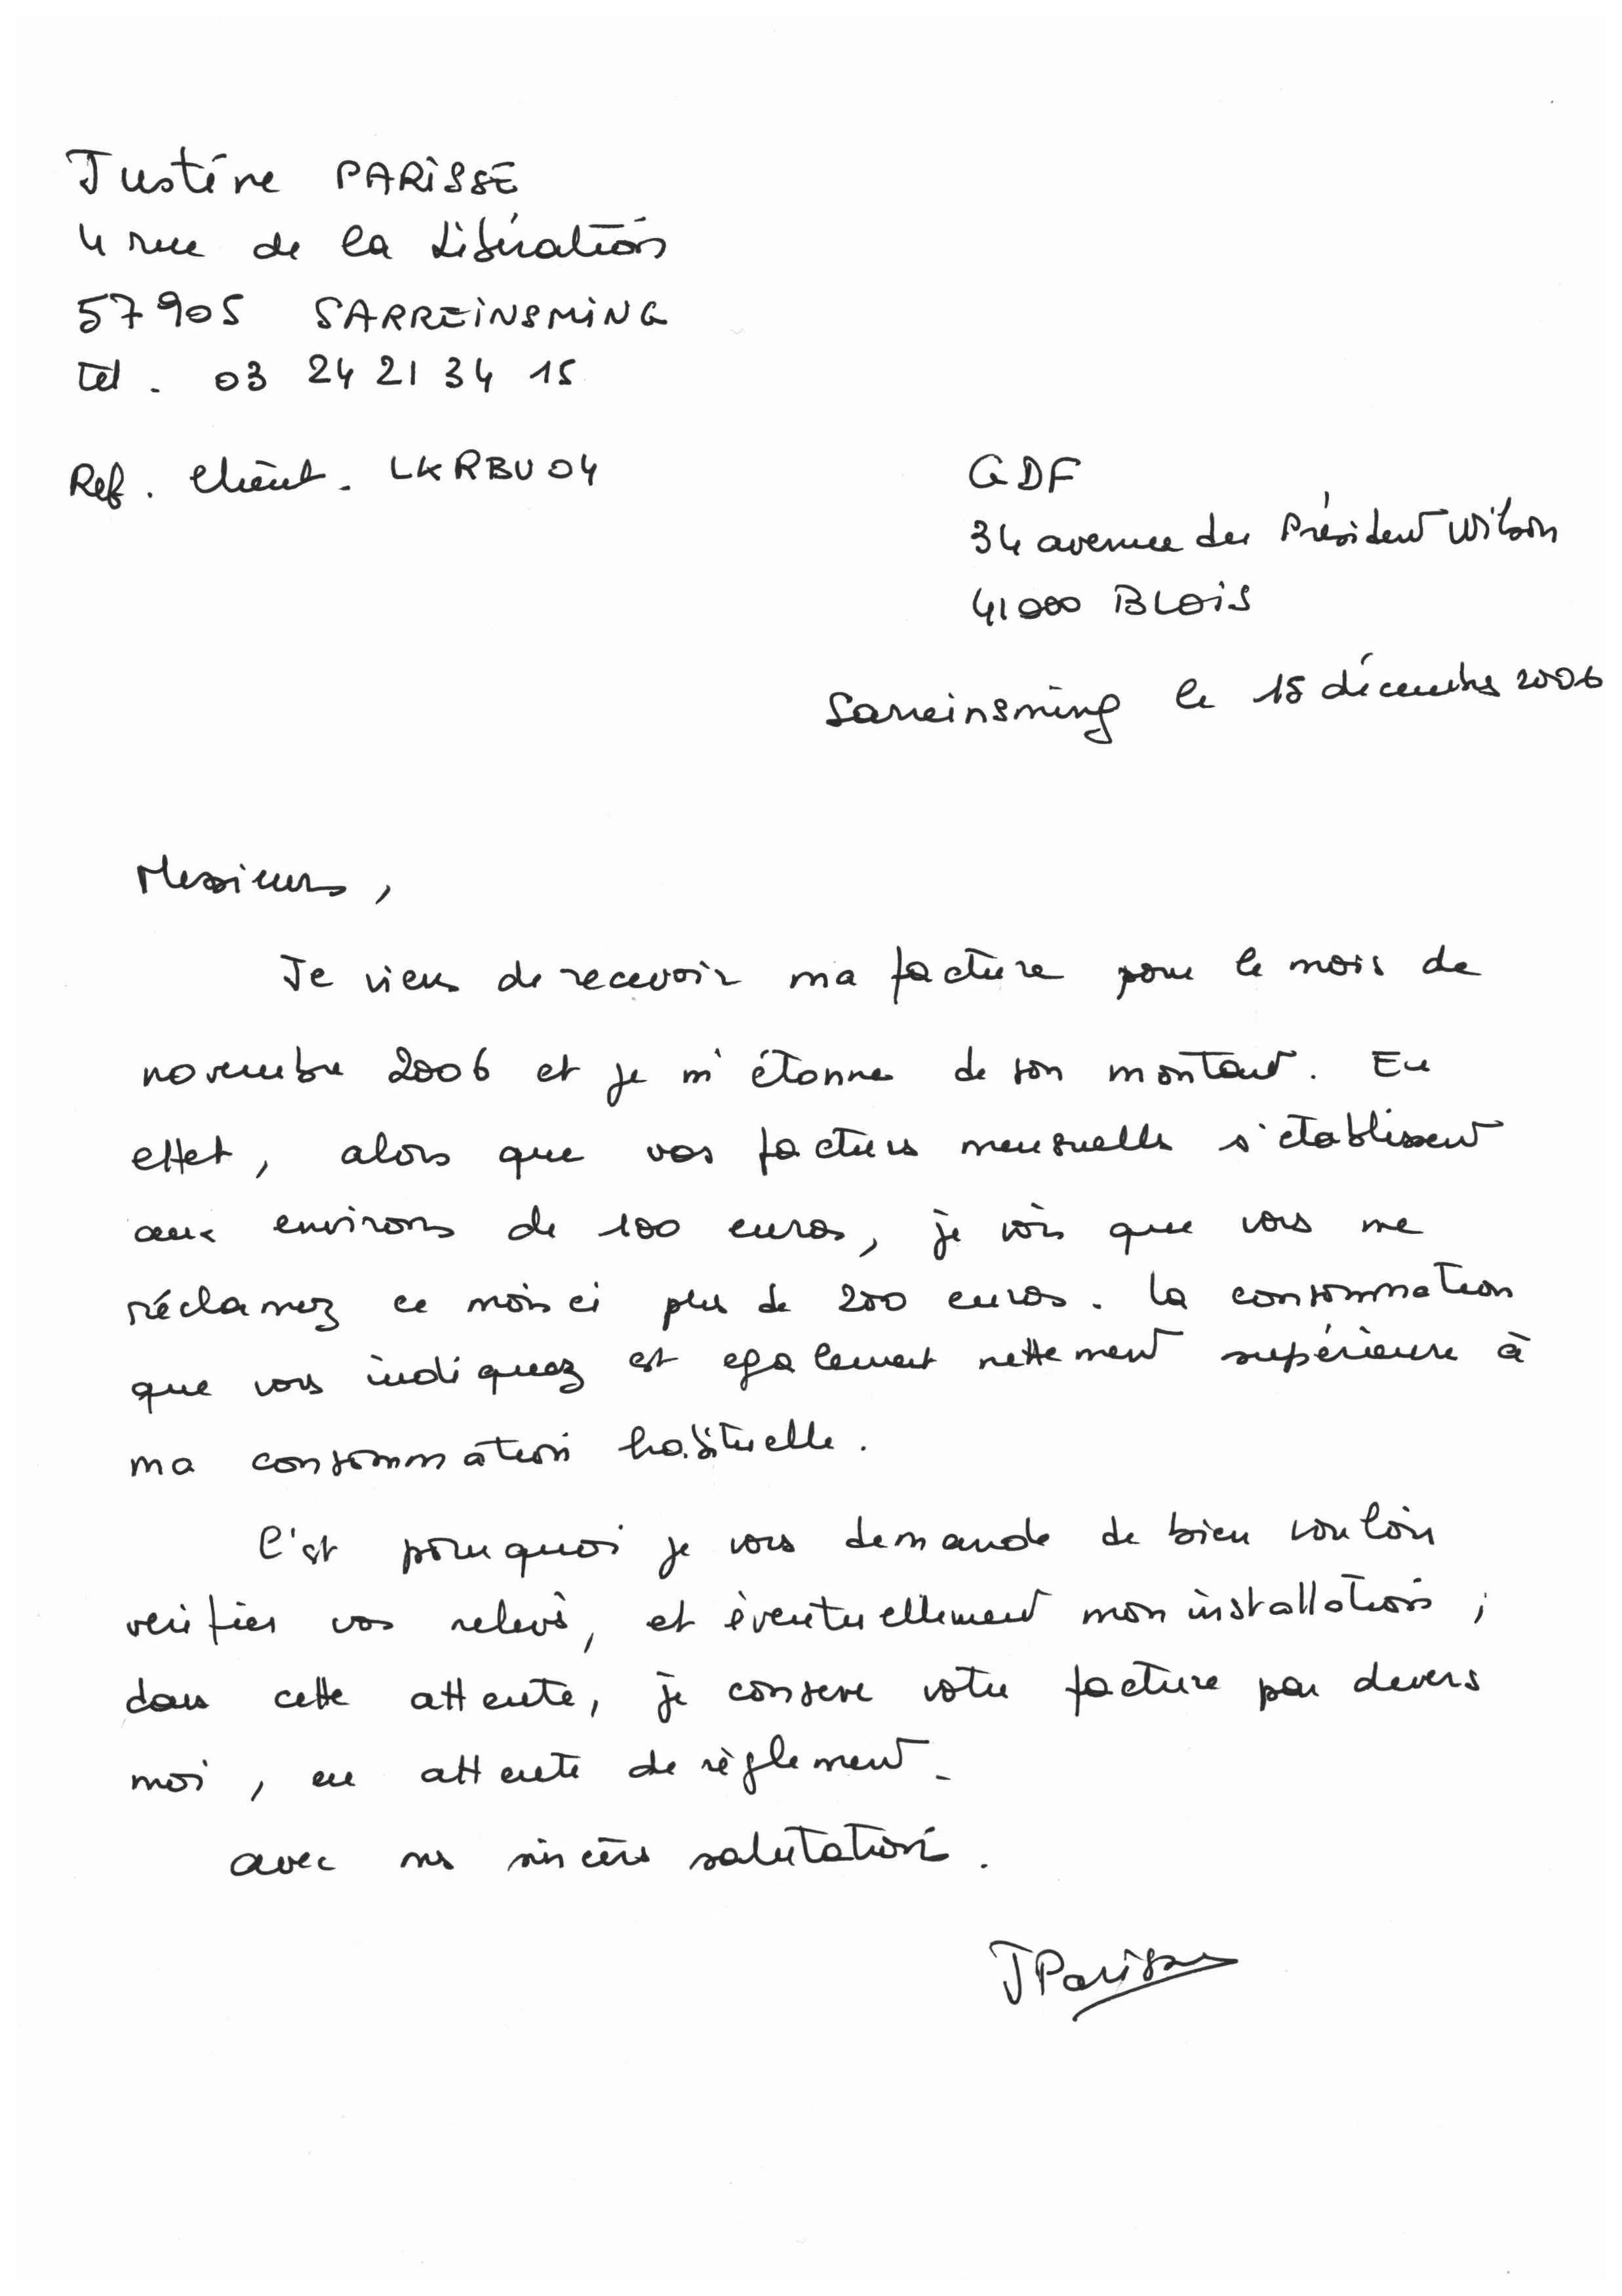 Justine PARISSE
4 rue de la Libération
57905 SARREINSMING
tél. 03 24 21 34 15
Ref. Client. LKRBU04
GDF
34 avenue du Président Wilson
41000 BLOIS
Sarreinsming le 15 décembre 2006
Messieurs,
Je viens de recevoir ma facture pour le mois de
novembre 2006 et je m'étonne de son montant. En
effet, alors que vos factures mensuelles s'établissent
aux environs de 100 euros, je vois que vous me
réclamez ce mois ci plus de 200 euros. La consommation
que vous indiquez est egalement nettement supérieure à
ma consommation habituelle.
C'est pourquoi je vous demande de bien vouloir
verifier vos relevés, et éventuellement mon installation ;
dans cette attente, je conserve votre facture par devers
moi, en attente de règlement.
avec mes sincères salutations.
JParisse